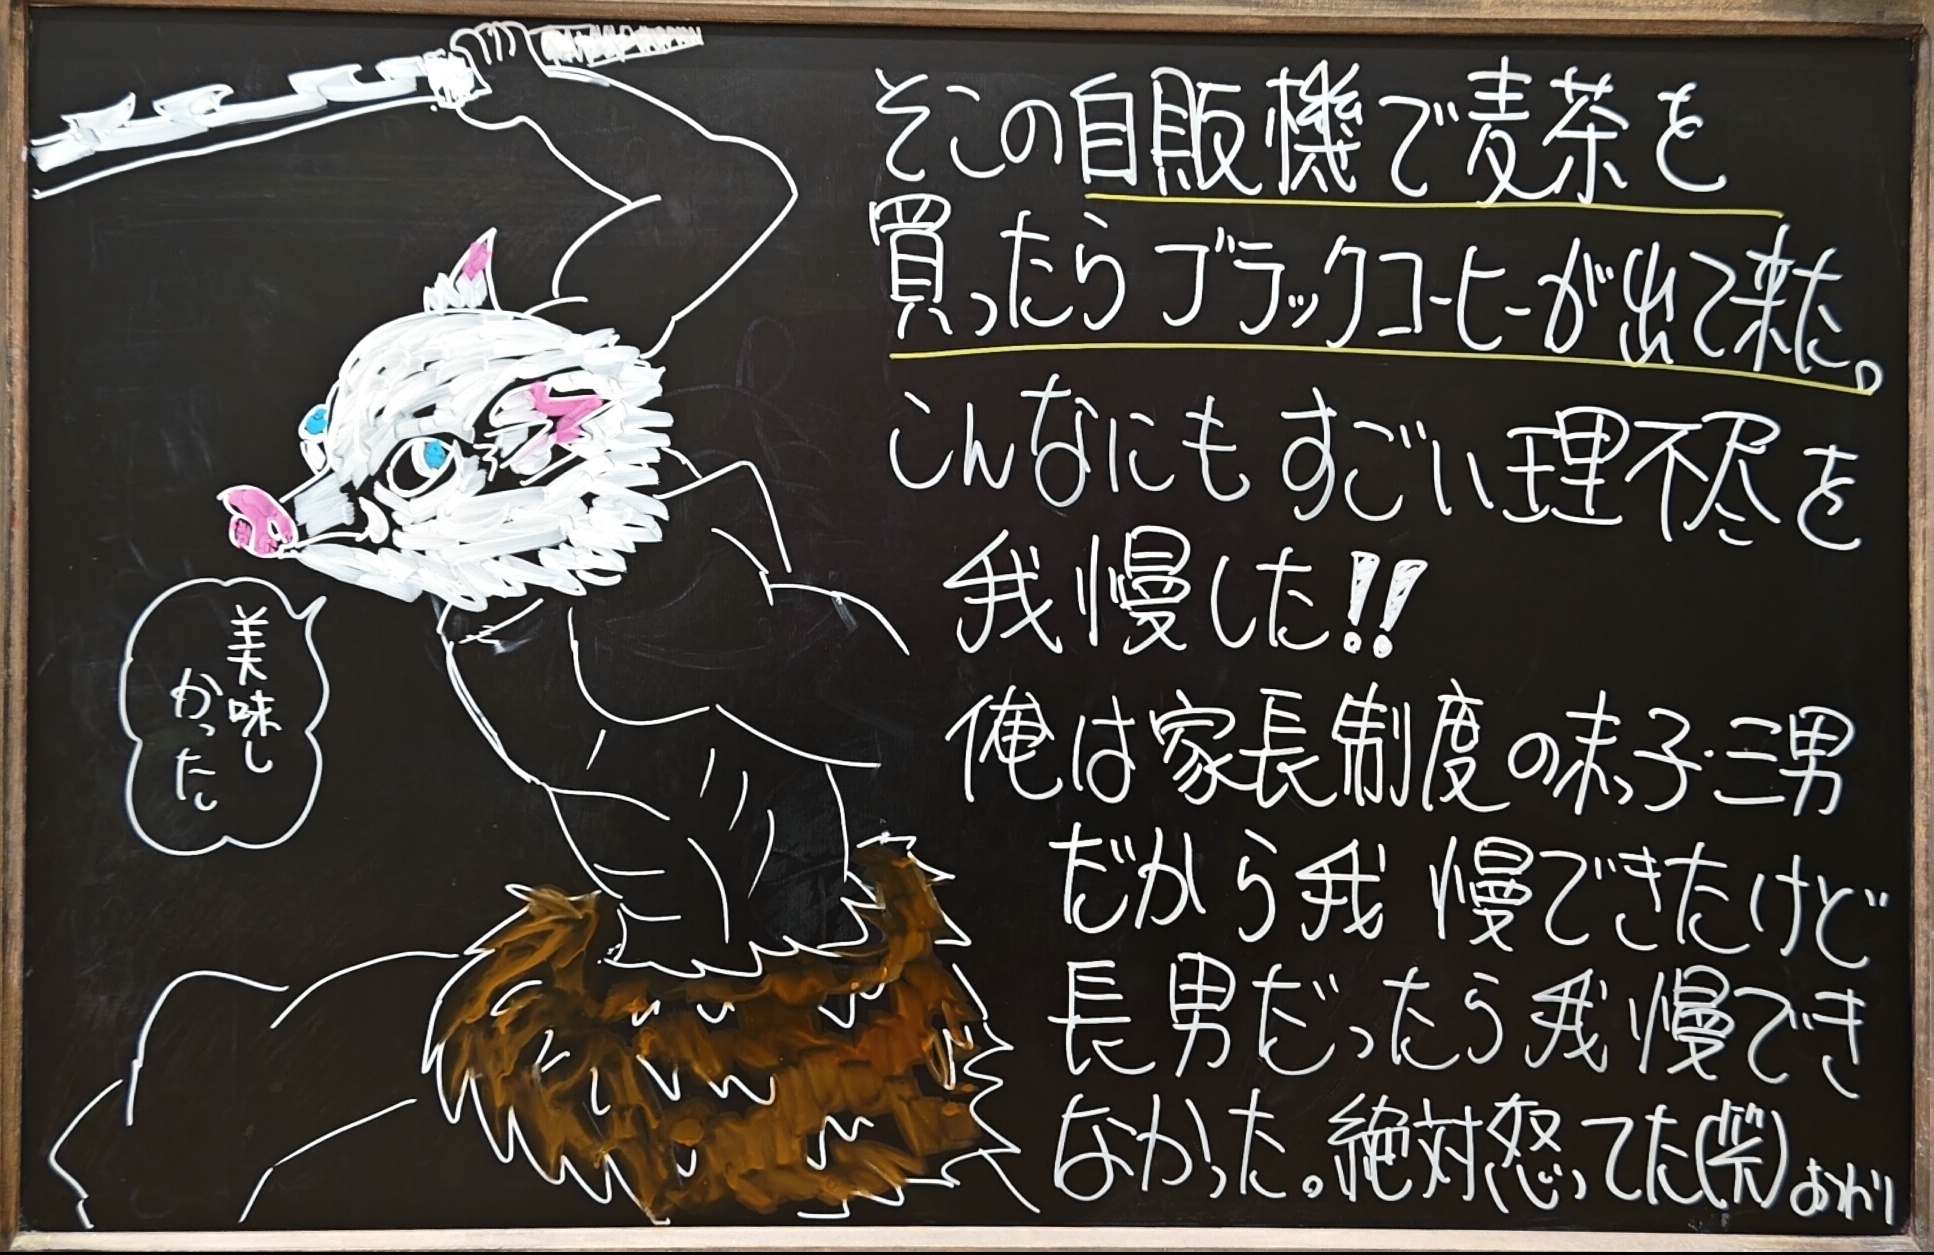 そこの自販機で麦茶を
買ったらブラックコーヒーが出て来た。
こんなにもすごい理不尽を
我慢した!!
俺は家長制度の末っ子・三男
だから我慢できたけど
長男だったら我慢でき
なかった。絶対怒ってた(笑)おわり
美味し
かった